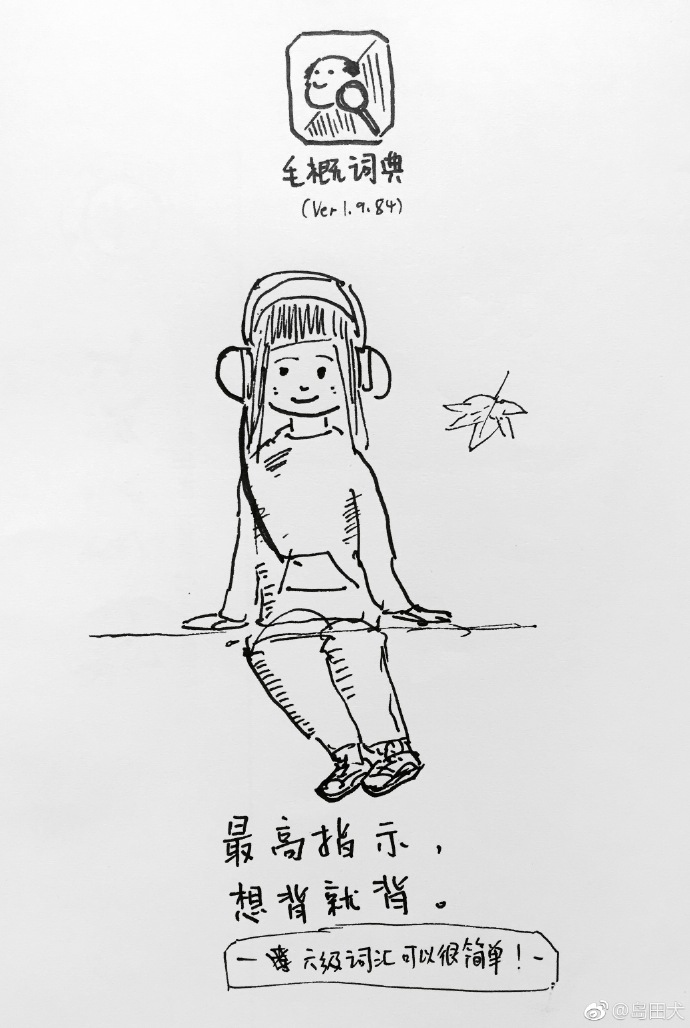 毛概词典
(Ver 1.9.84)
最高指示，
想背就背。
- 六级词汇可以很简单！-
@岛田犬